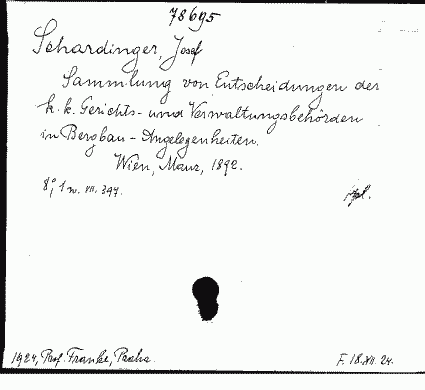 78695
Schardinger, Josef
Sammlung von Entscheidungen der
k. k. Gerichts- und Verwaltungsbehörden
in Bergbau-Angelegenheiten.
Wien, Manz, 1892.
8°, 1 w. VII. 397.
1924, Prof. Franke, Praha.
F. 18.XII.24.